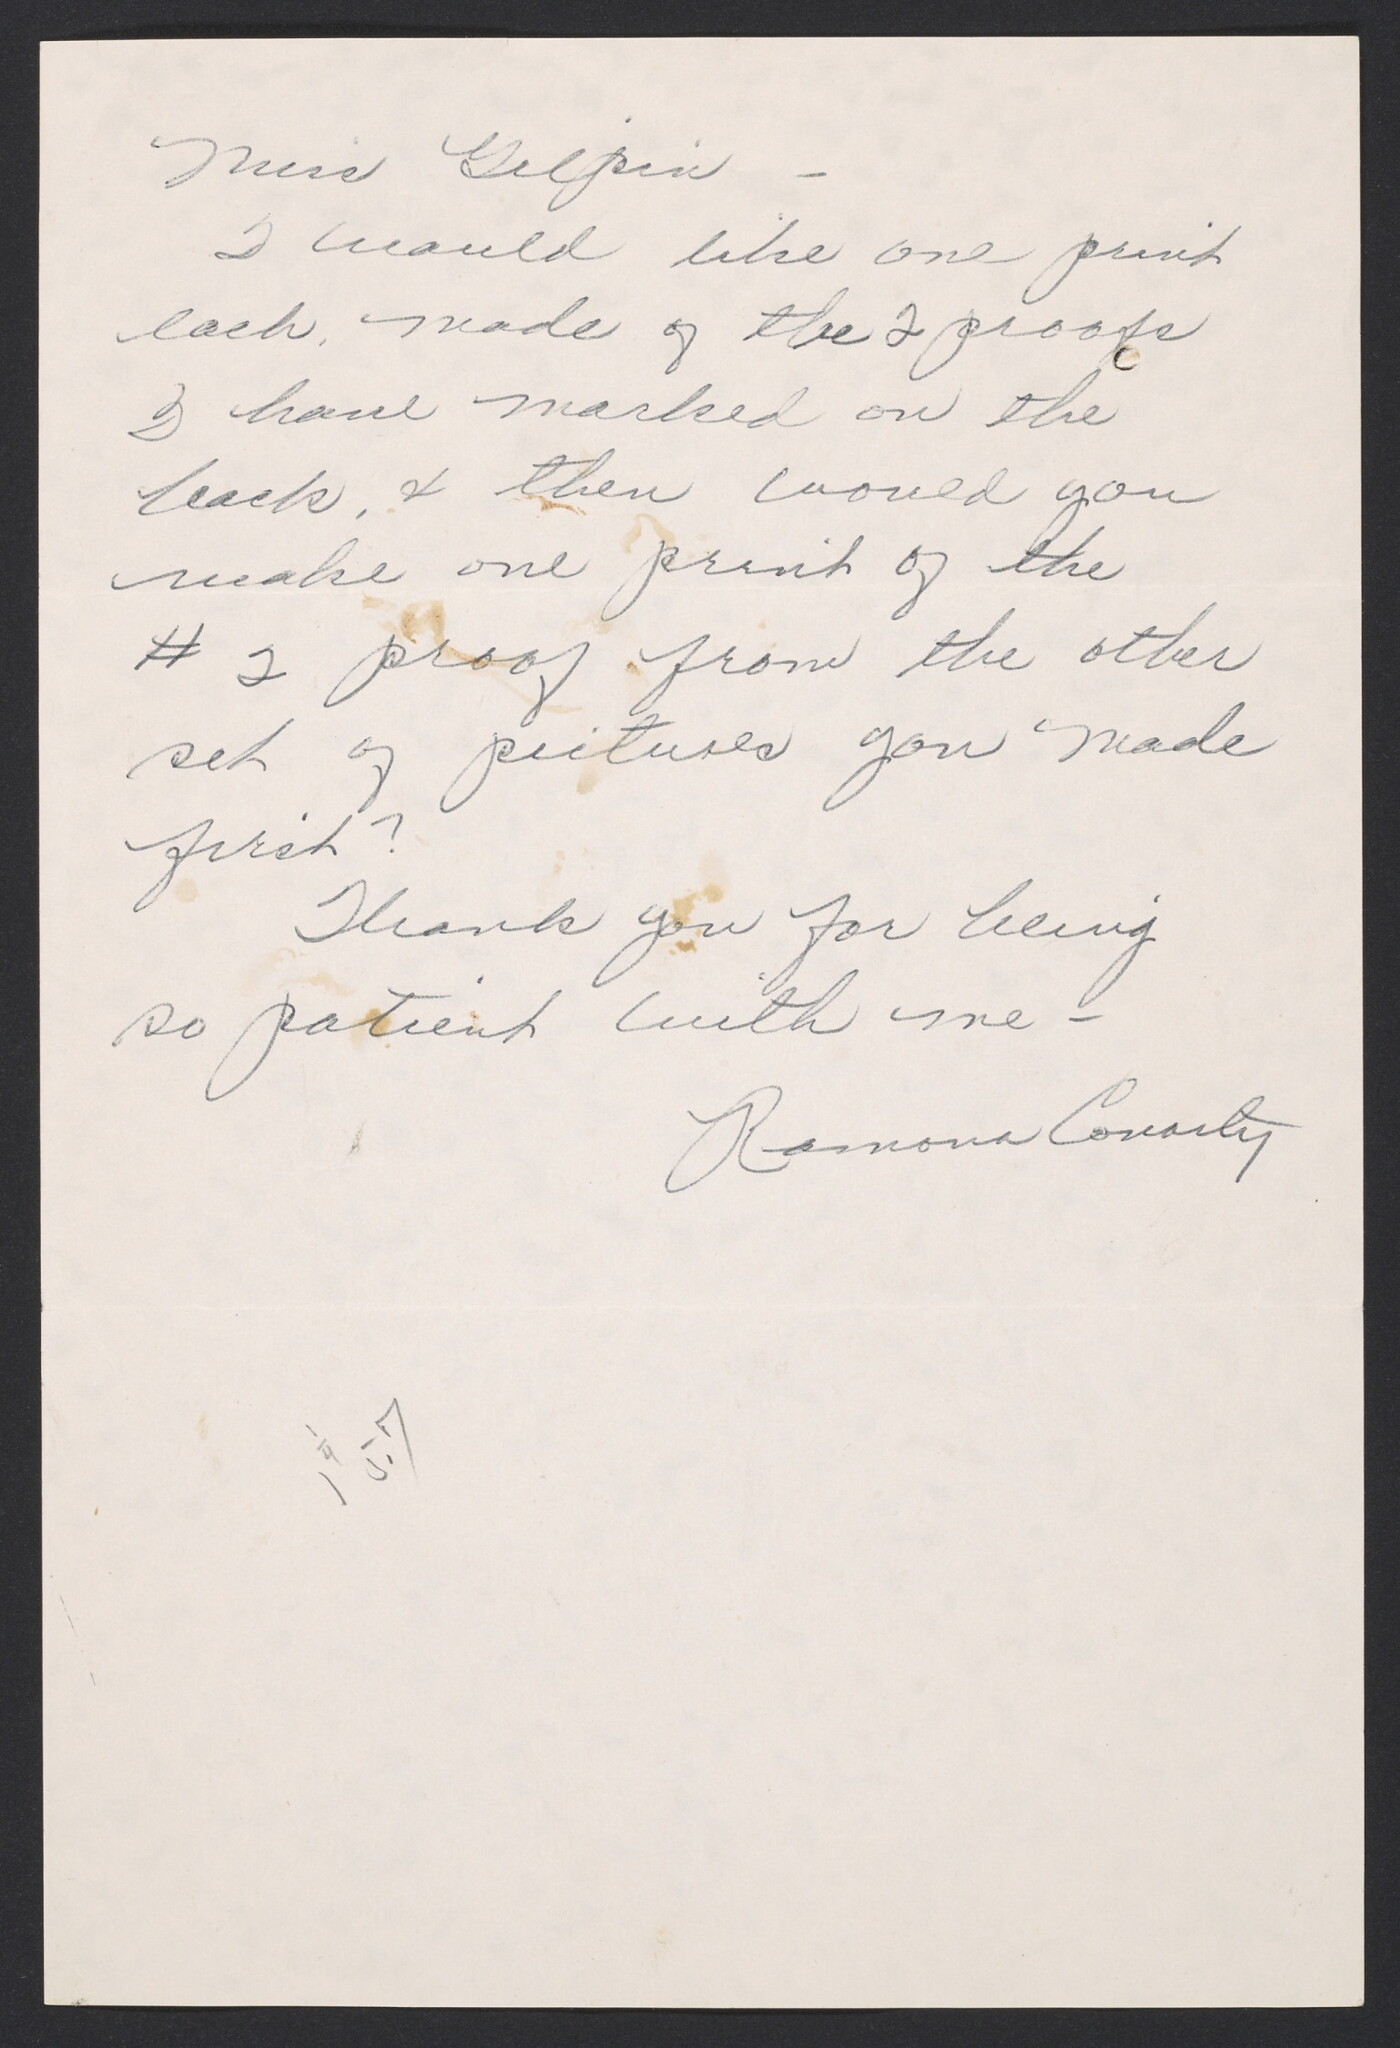 Miss Gilpin -
I would like one print
each, made of the 2 proofs
I have marked on the
back, & then would you
make one print of the
# 2 proof from the other
set of pictures you made
first?
Thank you for being
so patient with me -
Ramona